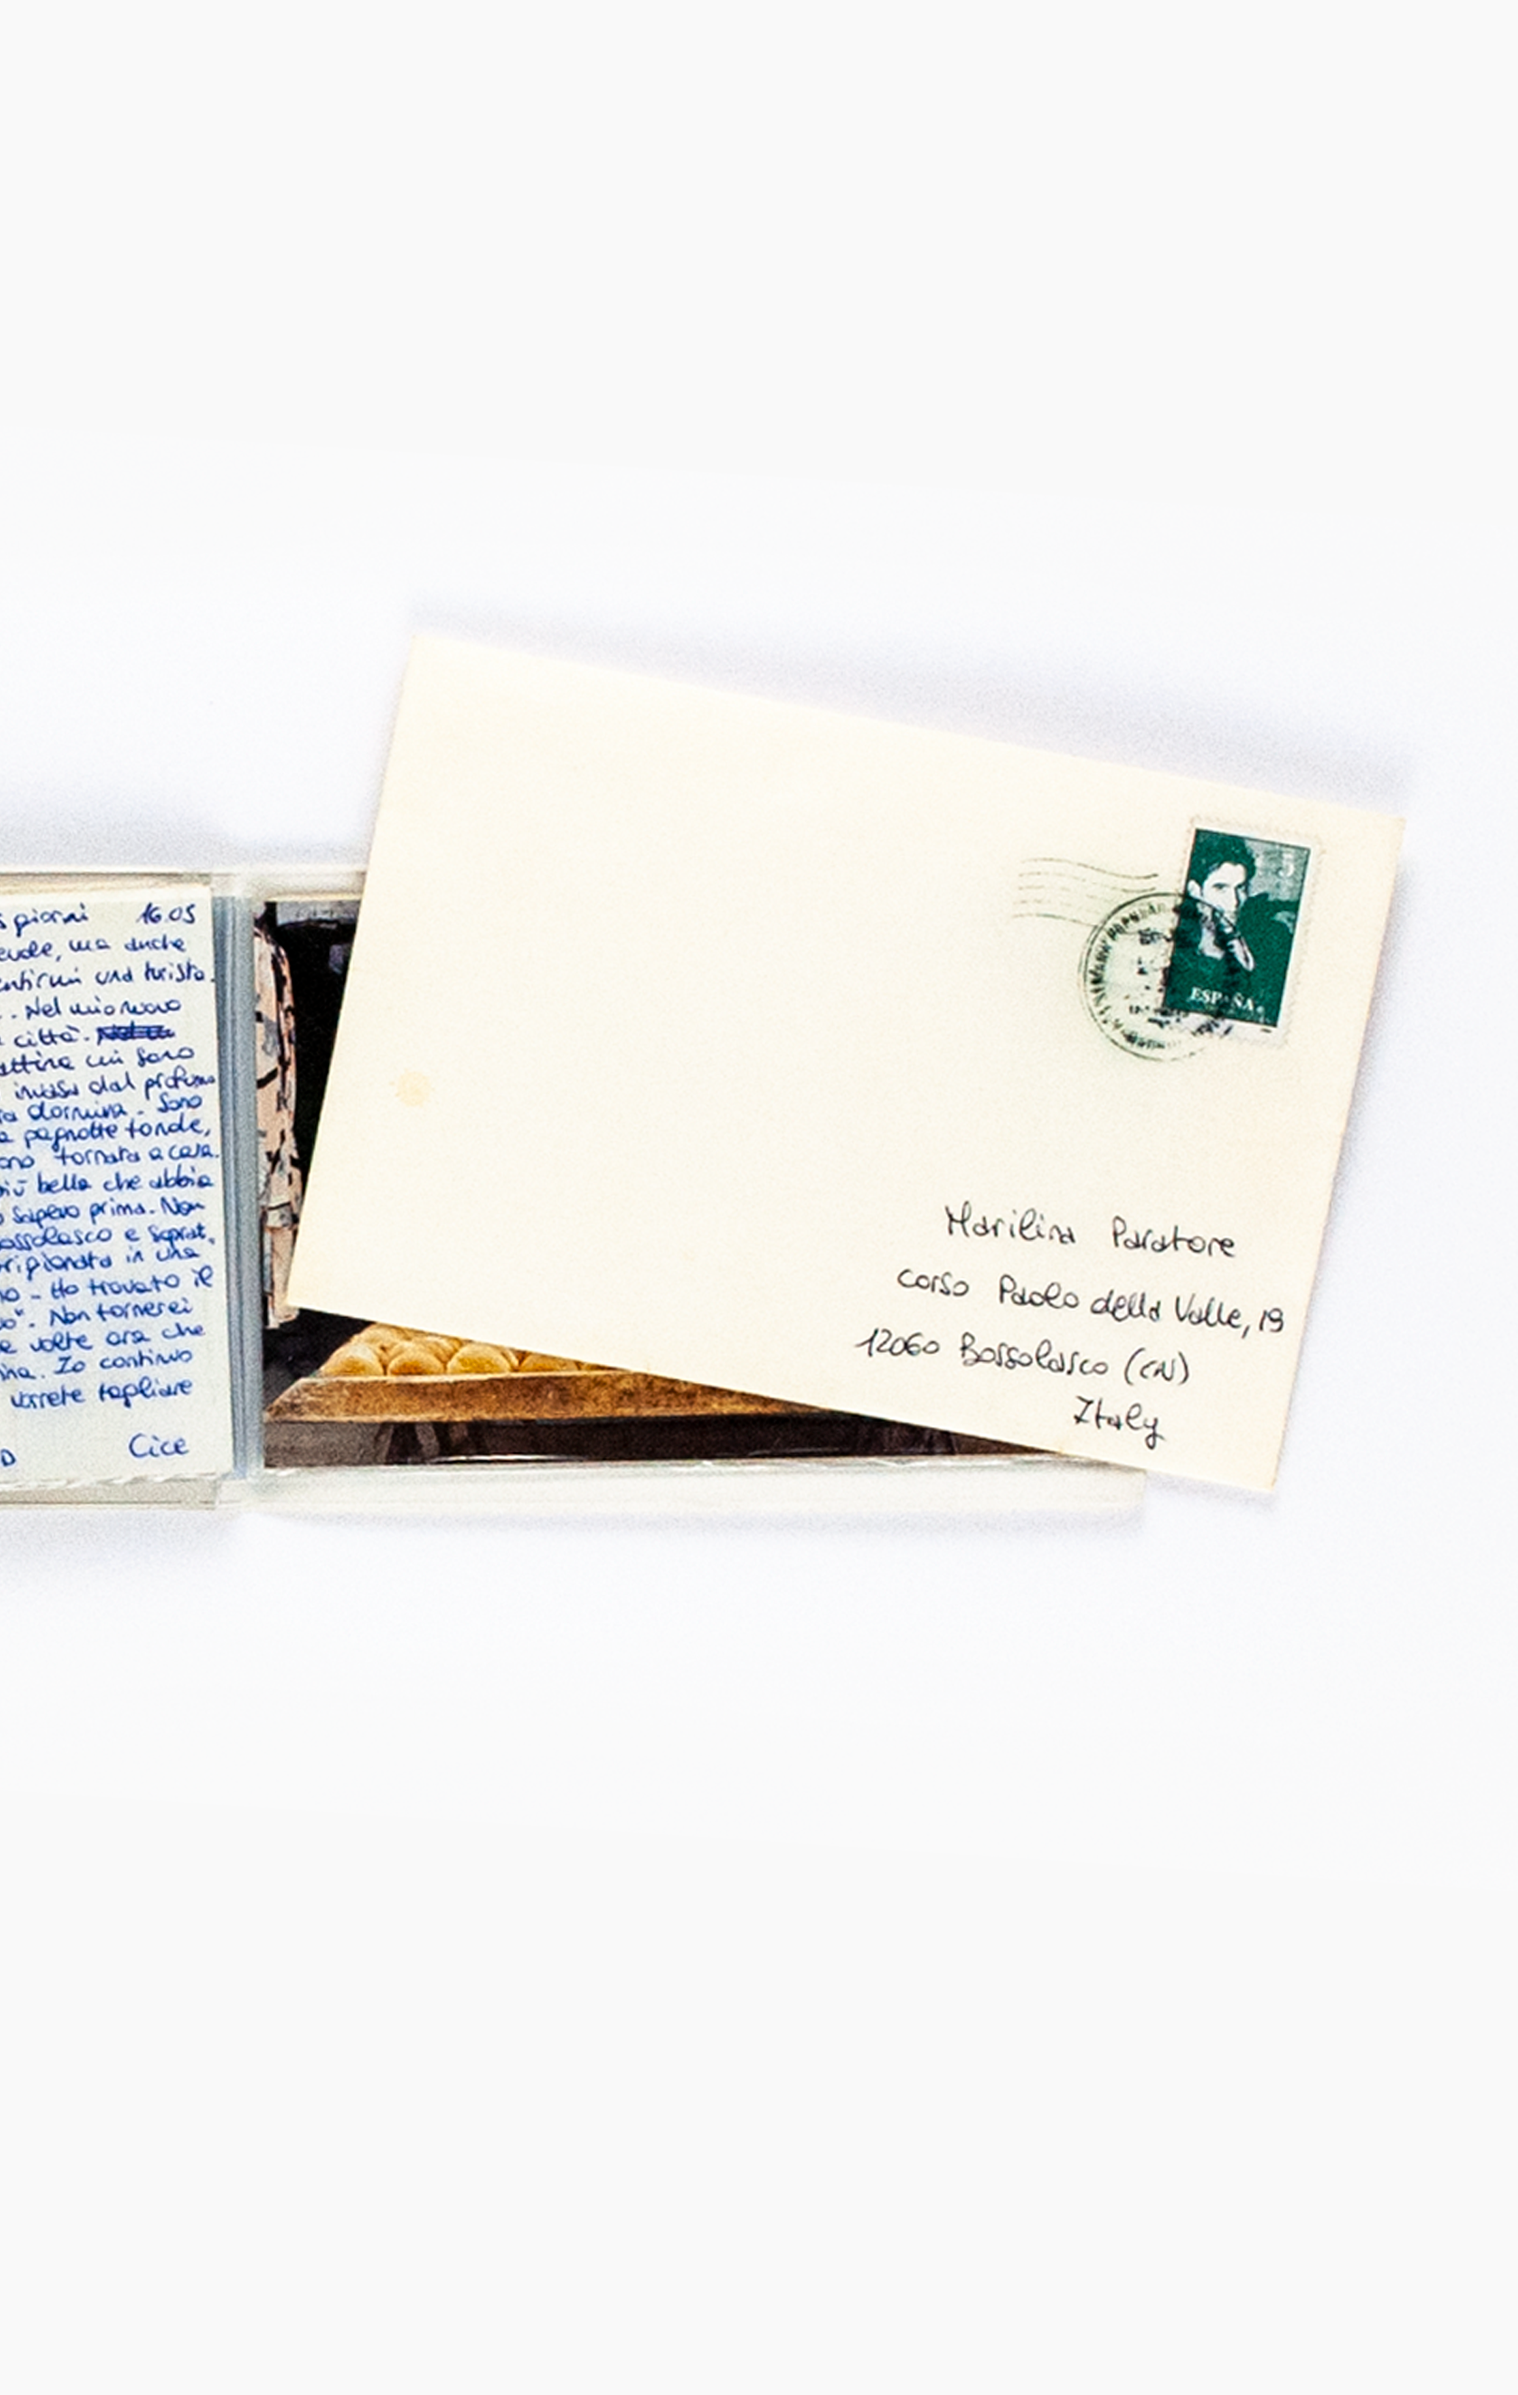 giorni 16.05
ma anche
una turista.
. Nel mio nuovo
città.
mi sono
invasa dal profumo
dormiva. Sono
pagnotte tonde,
tornata a casa.
bella che abbia
sapevo prima. Non
e soprat.
in una
Ho trovato il
". Non tornerei
volte ora che
. Io continuo
vorrete tagliare
Cice
5
ESPAÑA
Marilina Paratore
corso Paolo della Valle, 19
12060 Bossolasco (CN)
Italy